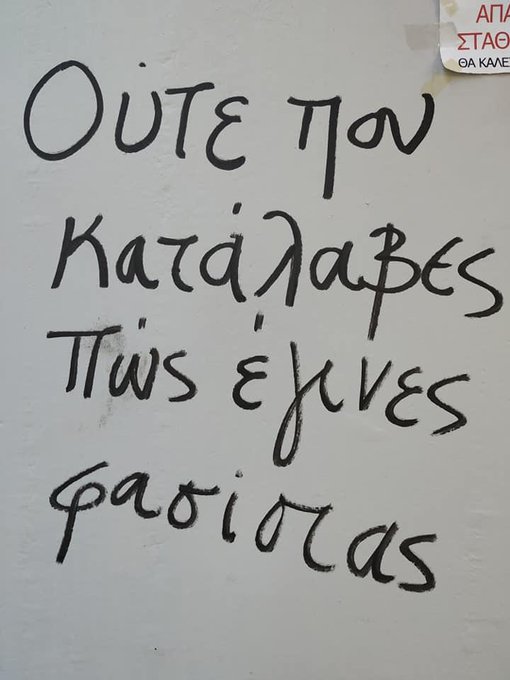 ΑΠΑ
ΣΤΑΘ
ΘΑ ΚΑΛΕΣ
Ούτε που
κατάλαβες
πώς έγινες
φασίστας